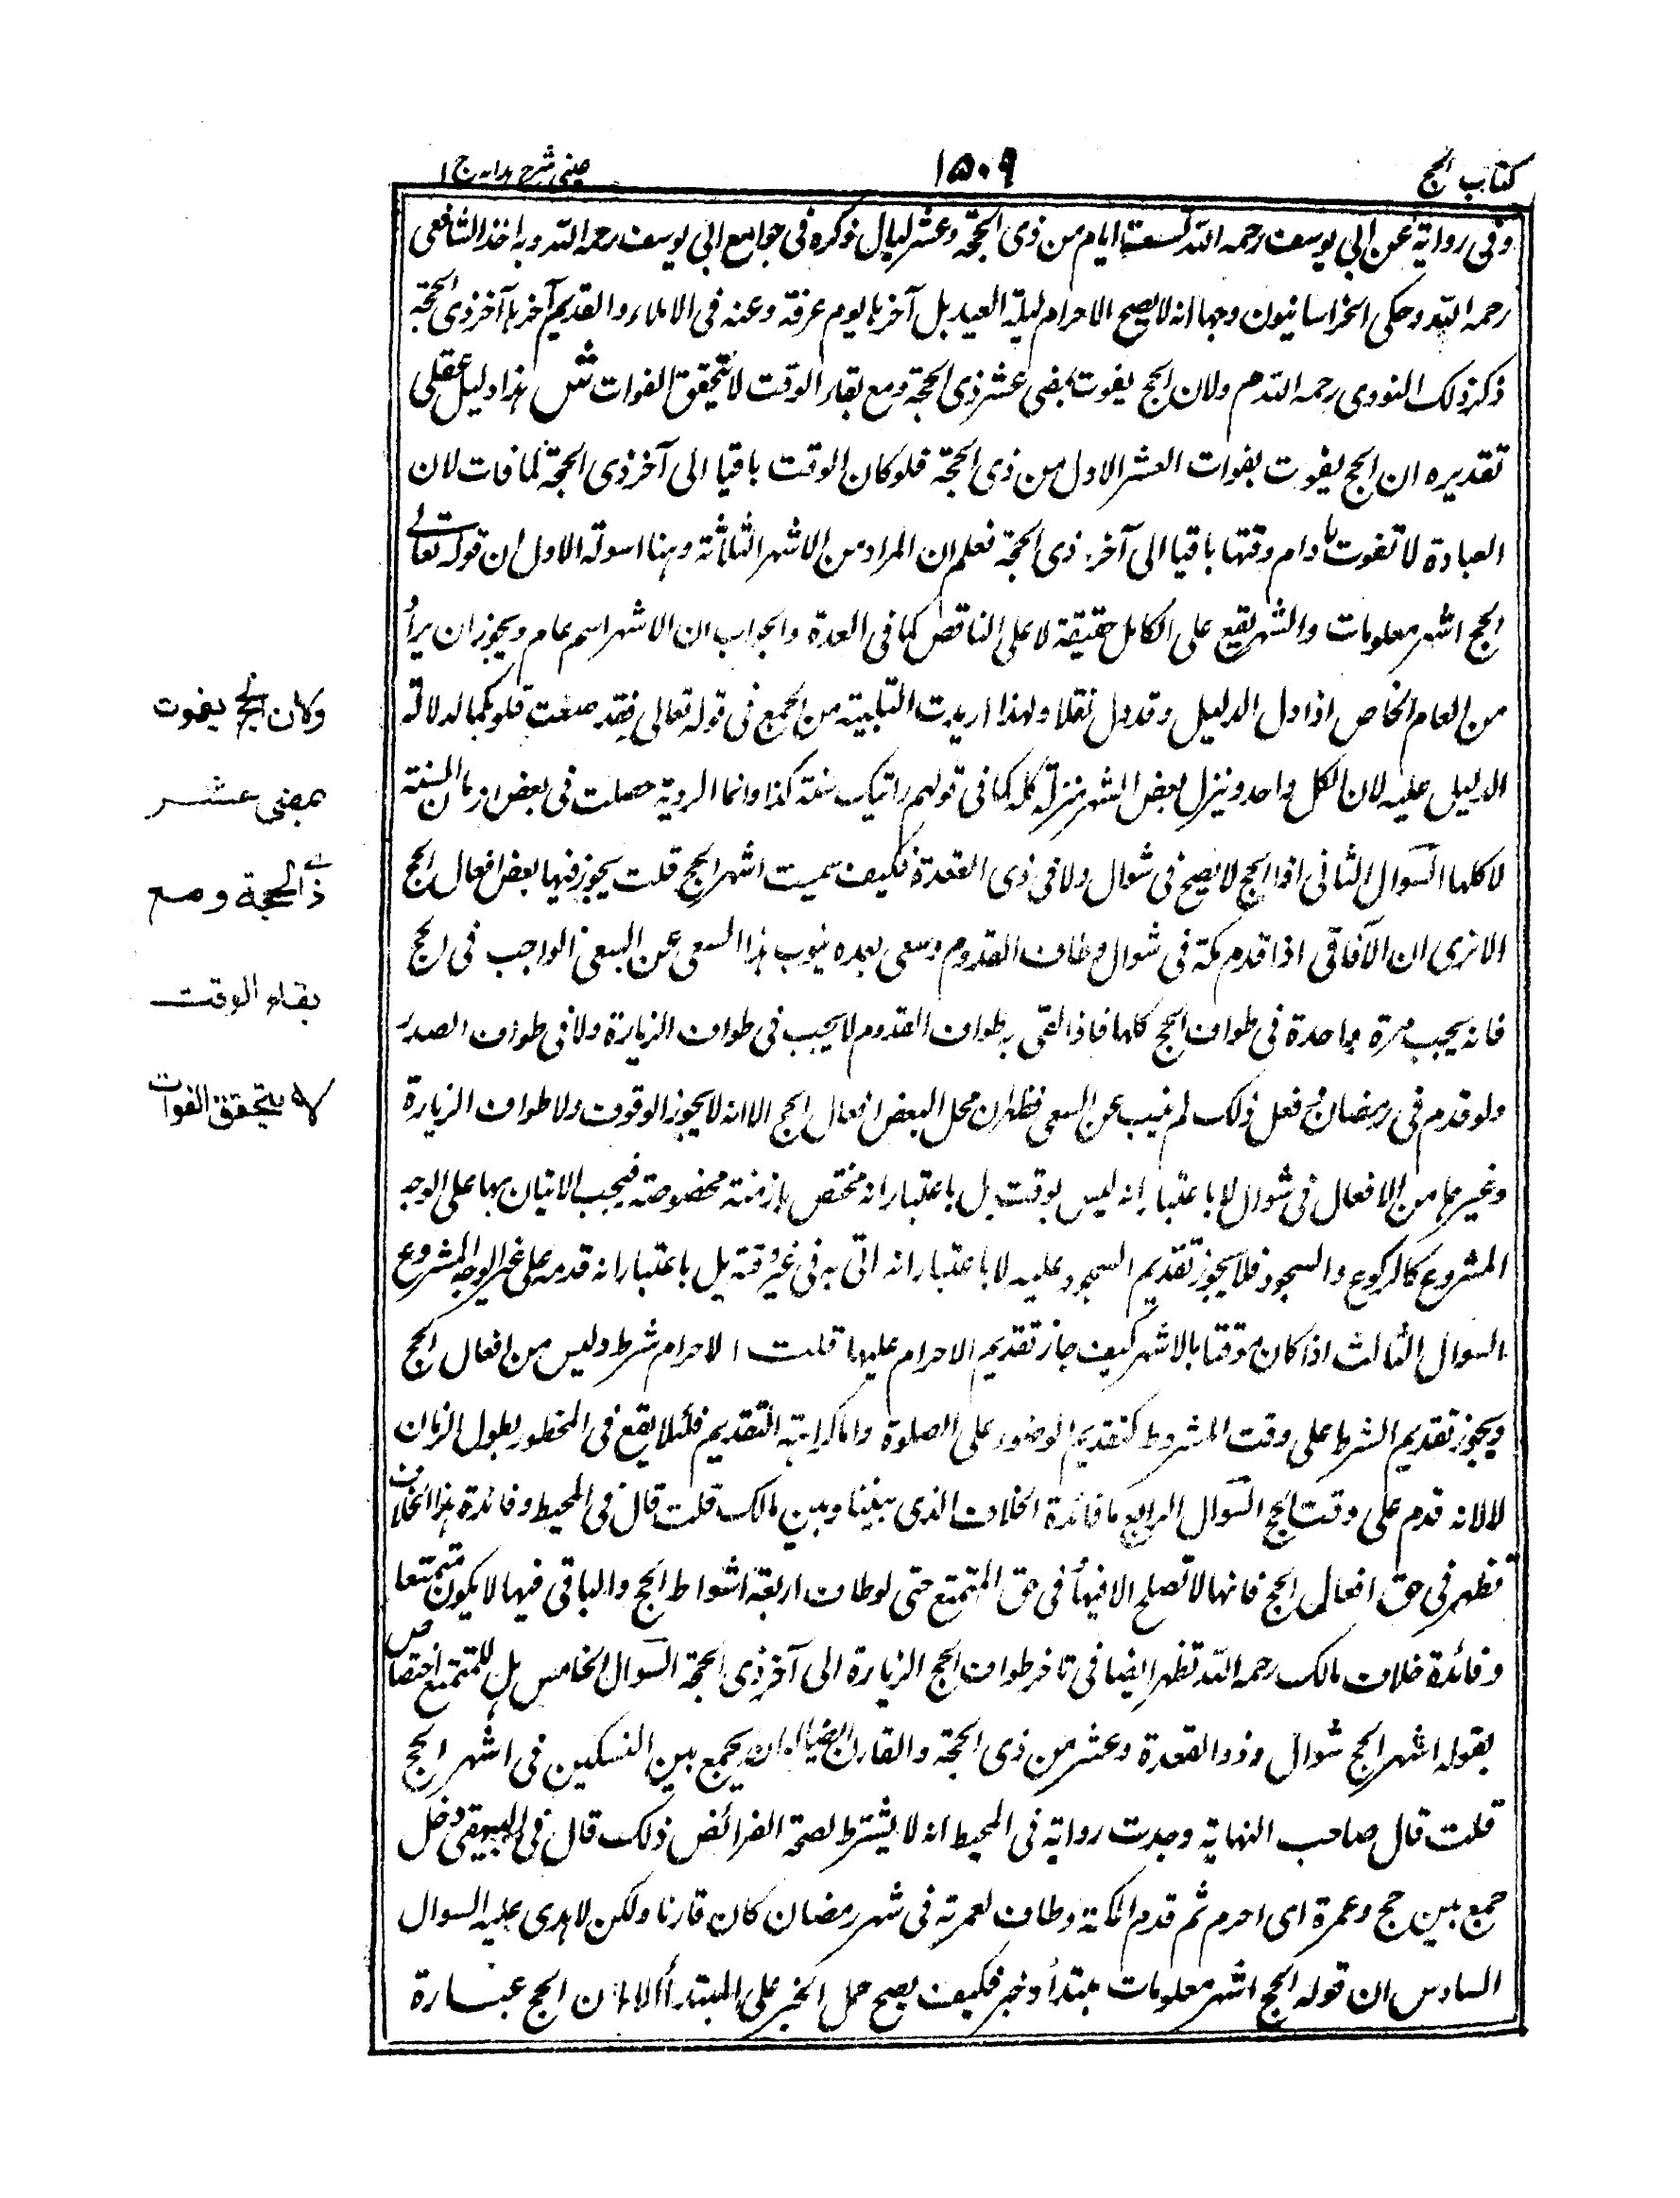 كتاب الحج
١٥٠٩
عینی شرح هدایه ج ١
وفى رواية عن ابى يوسف رحمه الله تسعة ايام من ذى الحجة وعشر ليال ذكره فى جوامع ابى يوسف رحمه الله وبه اخذ الشافعى
رحمه الله وحكى الخراسانيون وجها انه لا يصح الاحرام ليلة العيد بل آخرها يوم عرفة وعنه فى الاملاء والقديم آخرها آخر ذى الحجة
ذكر ذلك النووى رحمه الله م ولان الحج يفوت بمضى عشر ذى الحجة ومع بقاء الوقت لا يتحقق الفوات ش هذا دليل عقلى
تقديره ان الحج يفوت بفوات العشر الاول من ذى الحجة فلو كان الوقت باقيا الى آخر ذى الحجة لما فات لان
العبادة لا تفوت ما دام وقتها باقيا الى آخر ذى الحجة فعلم ان المراد من الاشهر الثلاثة وهنا اسولة الاول ان قوله تعالى
الحج اشهر معلومات والشهر يقع على الكامل حقيقة لا على الناقص كما فى العدة والجواب ان الاشهر اسم عام ويجوز ان يراد
من العام الخاص اذا دل الدليل وقد دل نقلا ولهذا اريدت التثنية من الجمع فى قوله تعالى فقد صغت قلوبكما لدلالة
الدليل عليه لان لكل واحد وينزل بعض الشهر منزلة كله كما فى قولهم رايتك سنة كذا وانما الروية حصلت فى بعض ازمان السنة
لا كلها السوال الثانى اذا الحج لا يصح فى شوال ولا فى ذى القعدة فكيف سميت اشهر الحج قلت يجوز فيها بعض افعال الحج
الا ترى ان الآفاقى اذا قدم مكة فى شوال وطاف القدوم وسعى بعده ينوب هذا السعى عن السعى الواجب فى الحج
فانه يجب مرة واحدة فى طواف الحج كلها فاذا اتى به طواف القدوم لا يجب فى طواف الزيارة ولا فى طواف الصدر
ولو قدم فى رمضان وفعل ذلك لم ينب عن السعى فظهر ان محل البعض افعال الحج الا انه لا يجوز الوقوف ولا طواف الزيارة
وغيرها من الافعال فى شوال لا باعتبار انه ليس بوقت بل باعتبار انه مختص بازمنة مخصوصة فيجب الاتيان بها على الوجه
المشروع كالركوع والسجود فلا يجوز تقديم السجود عليه لا باعتبار انه اتى به فى غير وقته بل باعتبار انه قدمه على غير الوجه المشروع
السوال الثالث اذا كان موقتا بالاشهر كيف جاز تقديم الاحرام عليها قلت الاحرام شرط وليس من افعال الحج
ويجوز تقديم الشرط على وقت المشروط كتقديم الوضوء على الصلوة واما كراهة التقديم فلئلا يقع فى المحظور بطول الزمان
لا لانه قدم على وقت الحج السوال الرابع ما فائدة الخلاف الذى بيننا وبين مالك قلت قال فى المحيط وفائدة هذا الخلاف
تظهر فى حق افعال الحج فانها لا تصلح الا فيها فى حق المتمتع حتى لو طاف اربعة اشواط الحج والباقى فيها لا يكون متمتعا
وفائدة خلاف مالك رحمه الله تظهر ايضا فى تاخر طواف الحج الزيارة الى آخر ذى الحجة السوال الخامس هل للمتمتع اختصاص
بقوله اشهر الحج شوال وذو القعدة وعشر من ذى الحجة والقارن ايضا له ان يجمع بين النسكين فى اشهر الحج
قلت قال صاحب النهاية وجدت رواية فى المحيط انه لا يشترط لصحة الفرائض ذلك قال فى البيهقى دخل
جمع بين حج وعمرة اى احرم ثم قدم المكة وطاف لعمرته فى شهر رمضان كان قارنا ولكن لا هدى عليه السوال
السادس ان قوله الحج اشهر معلومات مبتدأ وخبر فكيف يصح حمل الخبر على المبتدأ الا ان الحج عبارة
ولان الحج يفوت
بمضى عشر
ذى الحجة ومع
بقاء الوقت
لا يتحقق الفوات